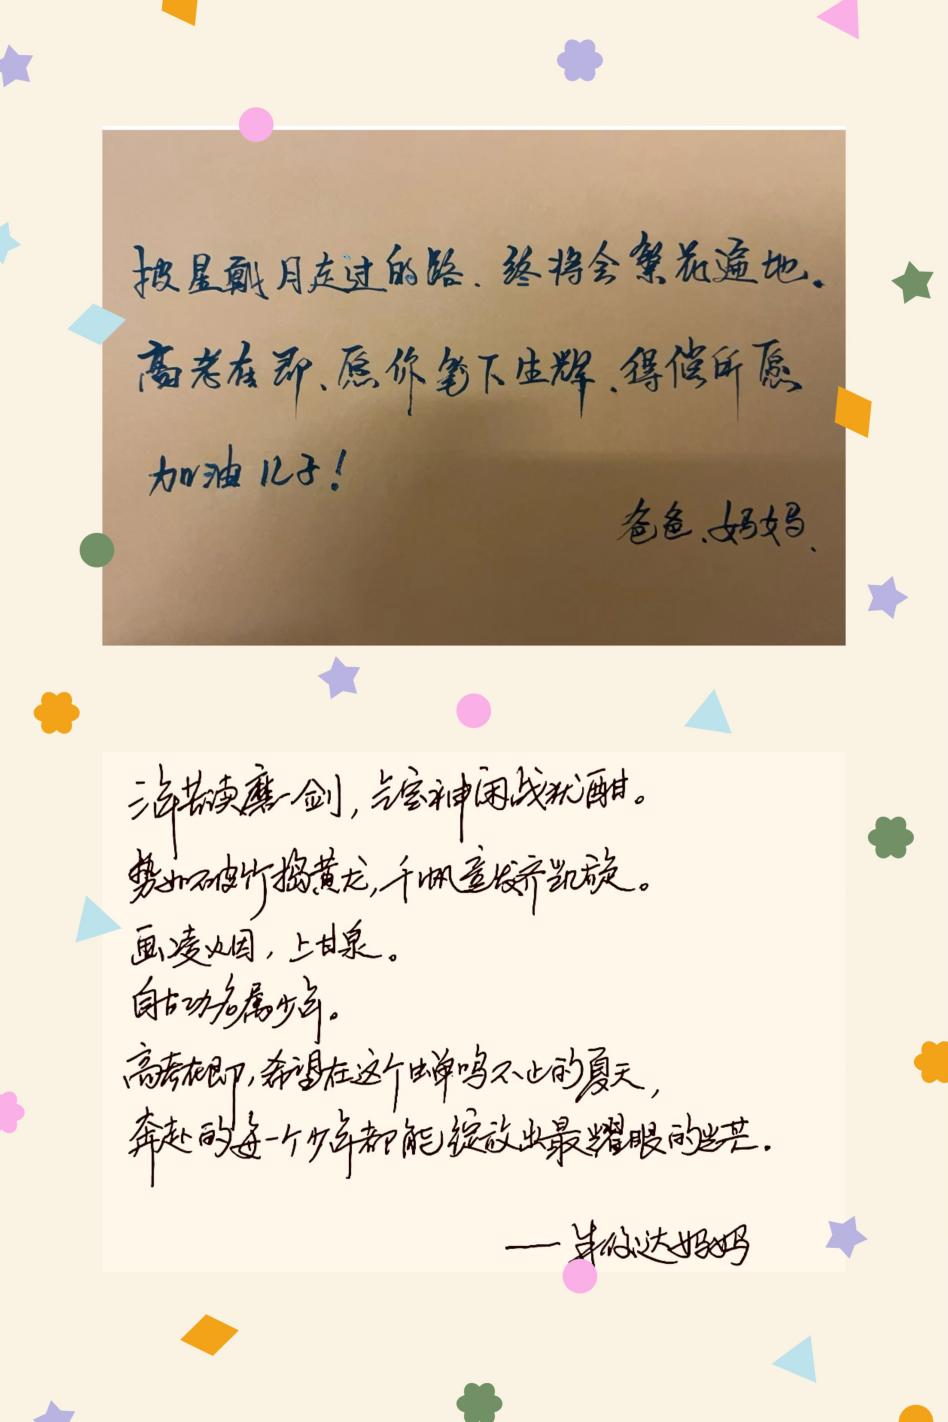 披星戴月走过的路、终将会繁花遍地.
高考在即、愿你笔下生辉、得偿所愿
加油儿子!
爸爸、妈妈、
三年苦读磨一剑,气定神闲战犹酣。
势如破竹捣黄龙,千帆竞发齐凯旋。
画凌烟,上甘泉。
自古功名属少年。
高考在即,希望在这个蝉鸣不止的夏天,
奔赴的每一个少年都能绽放出最耀眼的光芒.
——达妈妈